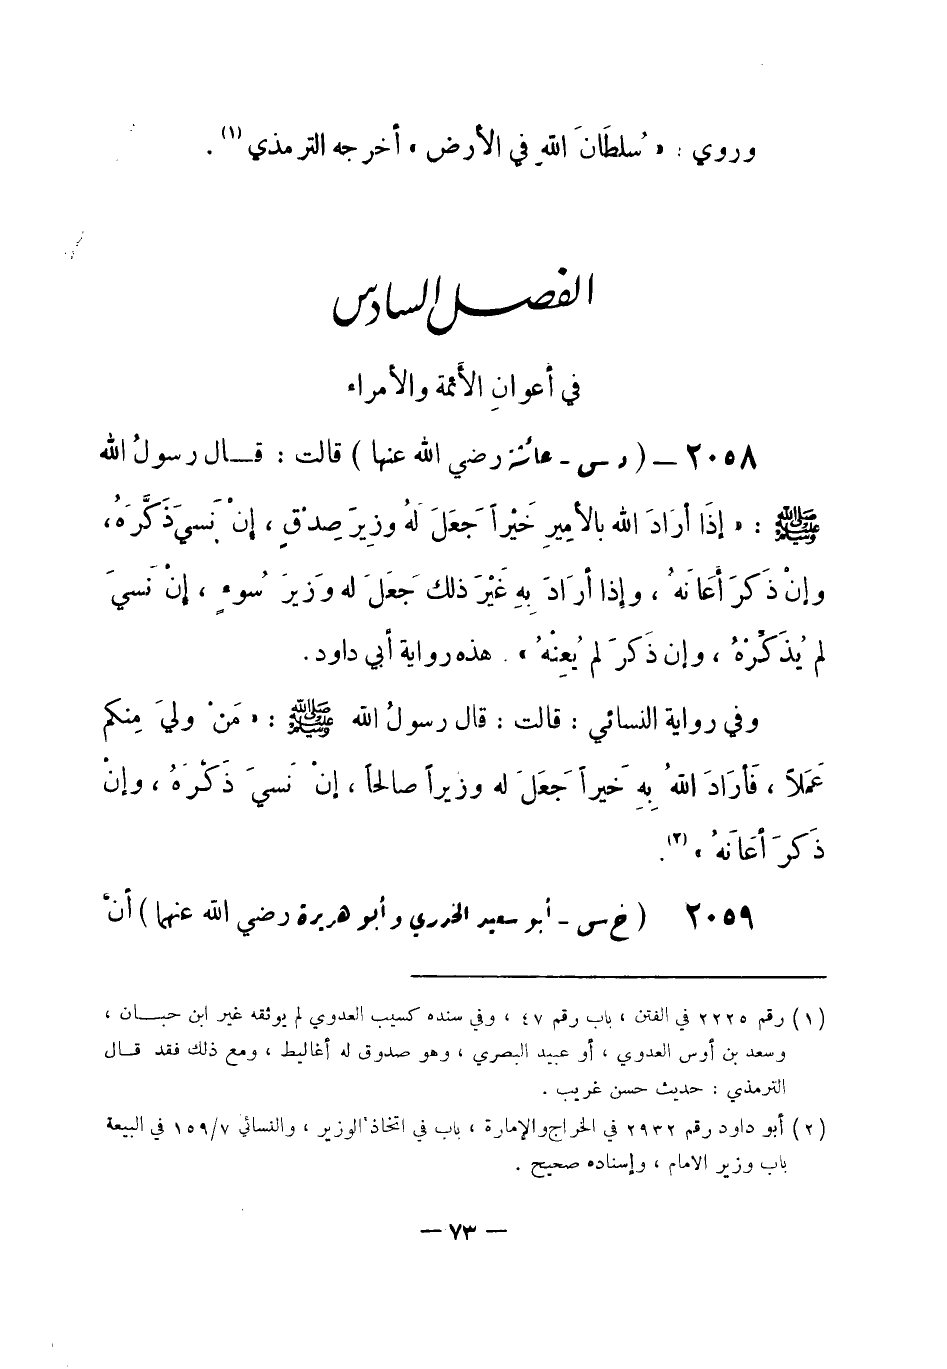 وروي : « سُلطَانَ اللهِ في الأرض » أخرجه الترمذي (١) .
الفصل السادس
في أعوانِ الأئمة والأمراء
٢٠٥٨ – ( د س - عائشة رضي الله عنها ) قالت : قـال رسولُ الله
ﷺ : « إذَا أرَادَ الله بالأميرِ خَيْراً جَعَلَ لَهُ وزيرَ صِدْقٍ ، إنْ نَسيَ ذَكَّرَهُ ،
وإنْ ذَكَرَ أعَانَهُ ، وإذا أرَادَ بِهِ غَيْرَ ذلك جَعَلَ له وَزيرَ سُوءٍ ، إنْ نَسيَ
لم يُذَكِّرْهُ ، وإن ذَكَرَ لم يُعِنْهُ » . هذه رواية أبي داود .
وفي رواية النسائي : قالت : قال رسولُ الله ﷺ : « مَنْ وليَ مِنكم
عَمَلاً ، فَأرَادَ اللهُ بِهِ خَيراً جَعَلَ له وزيراً صالحاً ، إنْ نَسيَ ذَكَّرَهُ ، وإنْ
ذَكَرَ أعَانَهُ » (٢) .
٢٠٥٩ ( خ س - أبو سعيد الخدري وأبو هريرة رضي الله عنهما ) أنَّ
(١) رقم ٢٢٢٥ في الفتن ، باب رقم ٤٧ ، وفي سنده كسيب العدوي لم يوثقه غير ابن حبـان ،
وسعد بن أوس العدوي ، أو عبيد البصري ، وهو صدوق له أغاليط ، ومع ذلك فقد قـال
الترمذي : حديث حسن غريب .
(٢) أبو داود رقم ٢٩٣٢ في الخراج والإمارة ، باب في اتخاذ الوزير ، والنسائي ١٥٩/٧ في البيعة
باب وزير الامام ، وإسناده صحيح .
– ٧٣ –